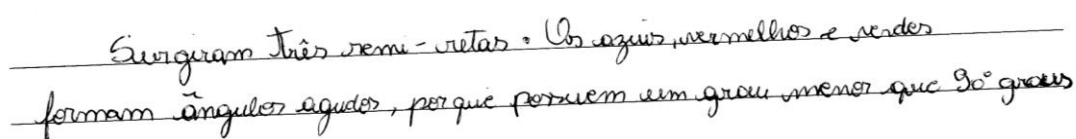 Surgiram três semi-retas. Os azuis, vermelhos e verdes
formam ângulos agudos, porque possuem um grau menor que 90° graus